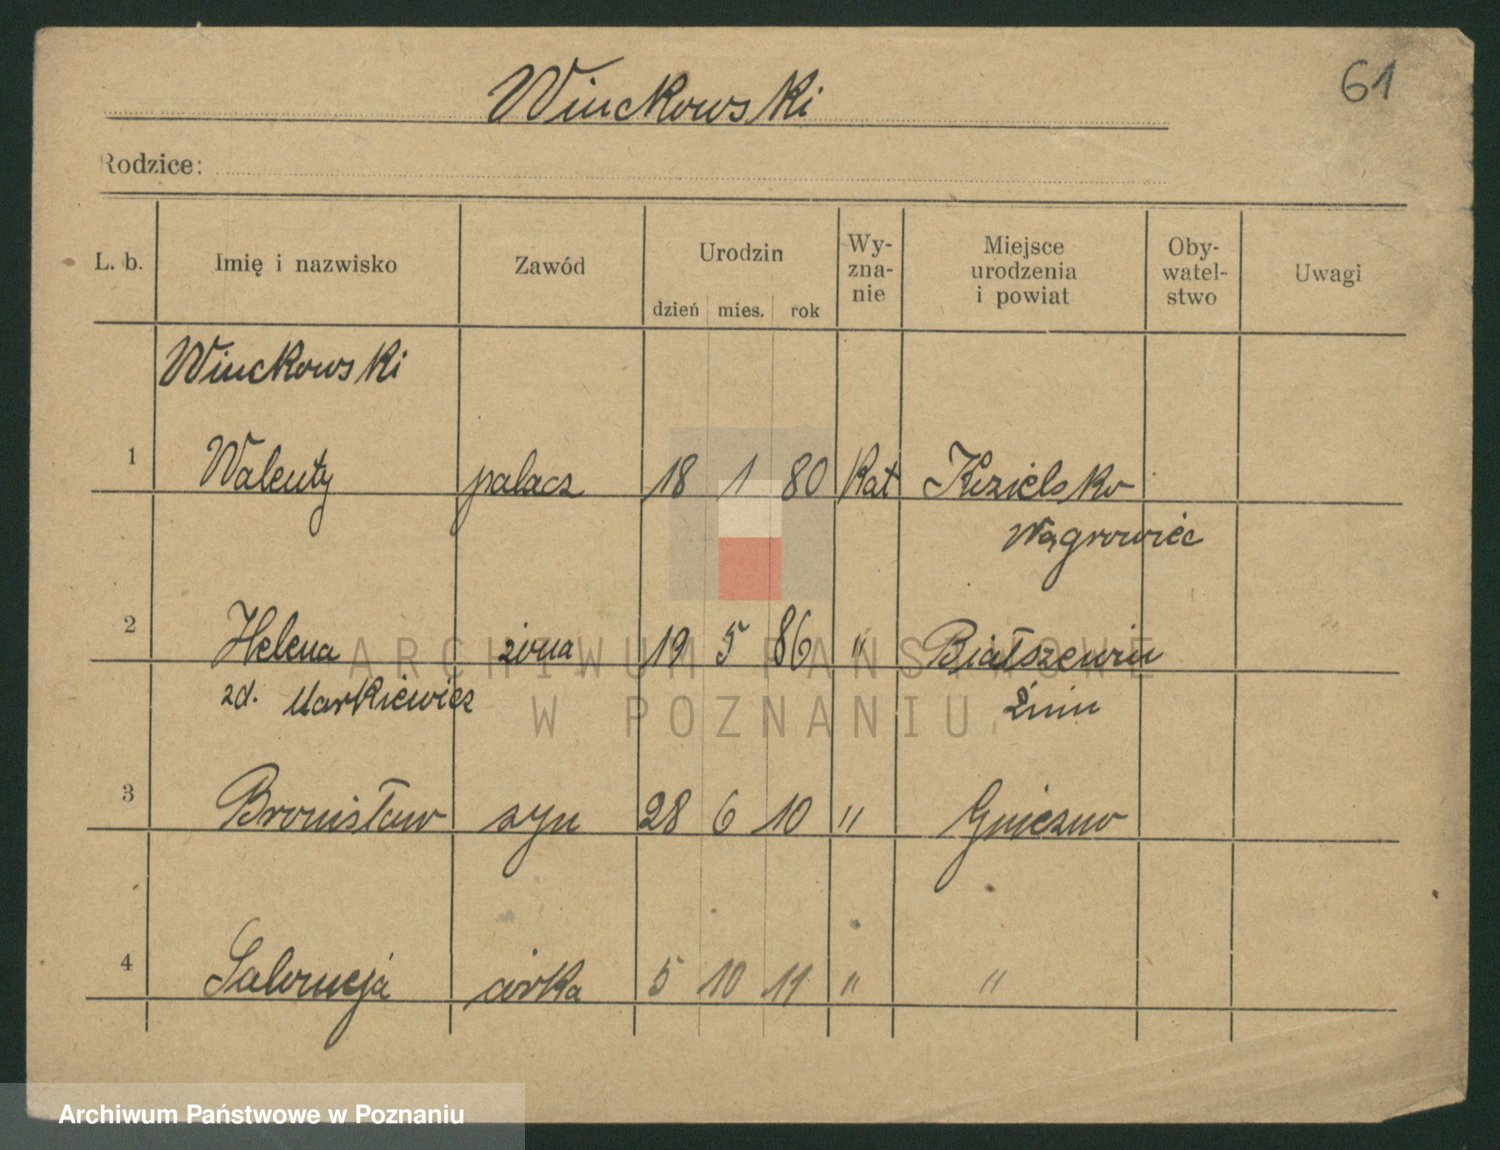 Winckowski
61
Rodzice:
L. b. Imię i nazwisko Zawód Urodzin dzień mies. rok Wy-zna-nie Miejsce urodzenia i powiat Oby-watel-stwo Uwagi
Winckowski
1 Walenty palacz 18 1 80 Kat Kozielsko
Wągrowiec
2 Helena żona 19 5 86 " Białożewin
zd. Markiewicz Żnin
3 Bronisław syn 28 6 10 " Gniezno
4 Salomeja córka 5 10 11 " "
ARCHIWUM PAŃSTWOWE
W POZNANIU
Archiwum Państwowe w Poznaniu